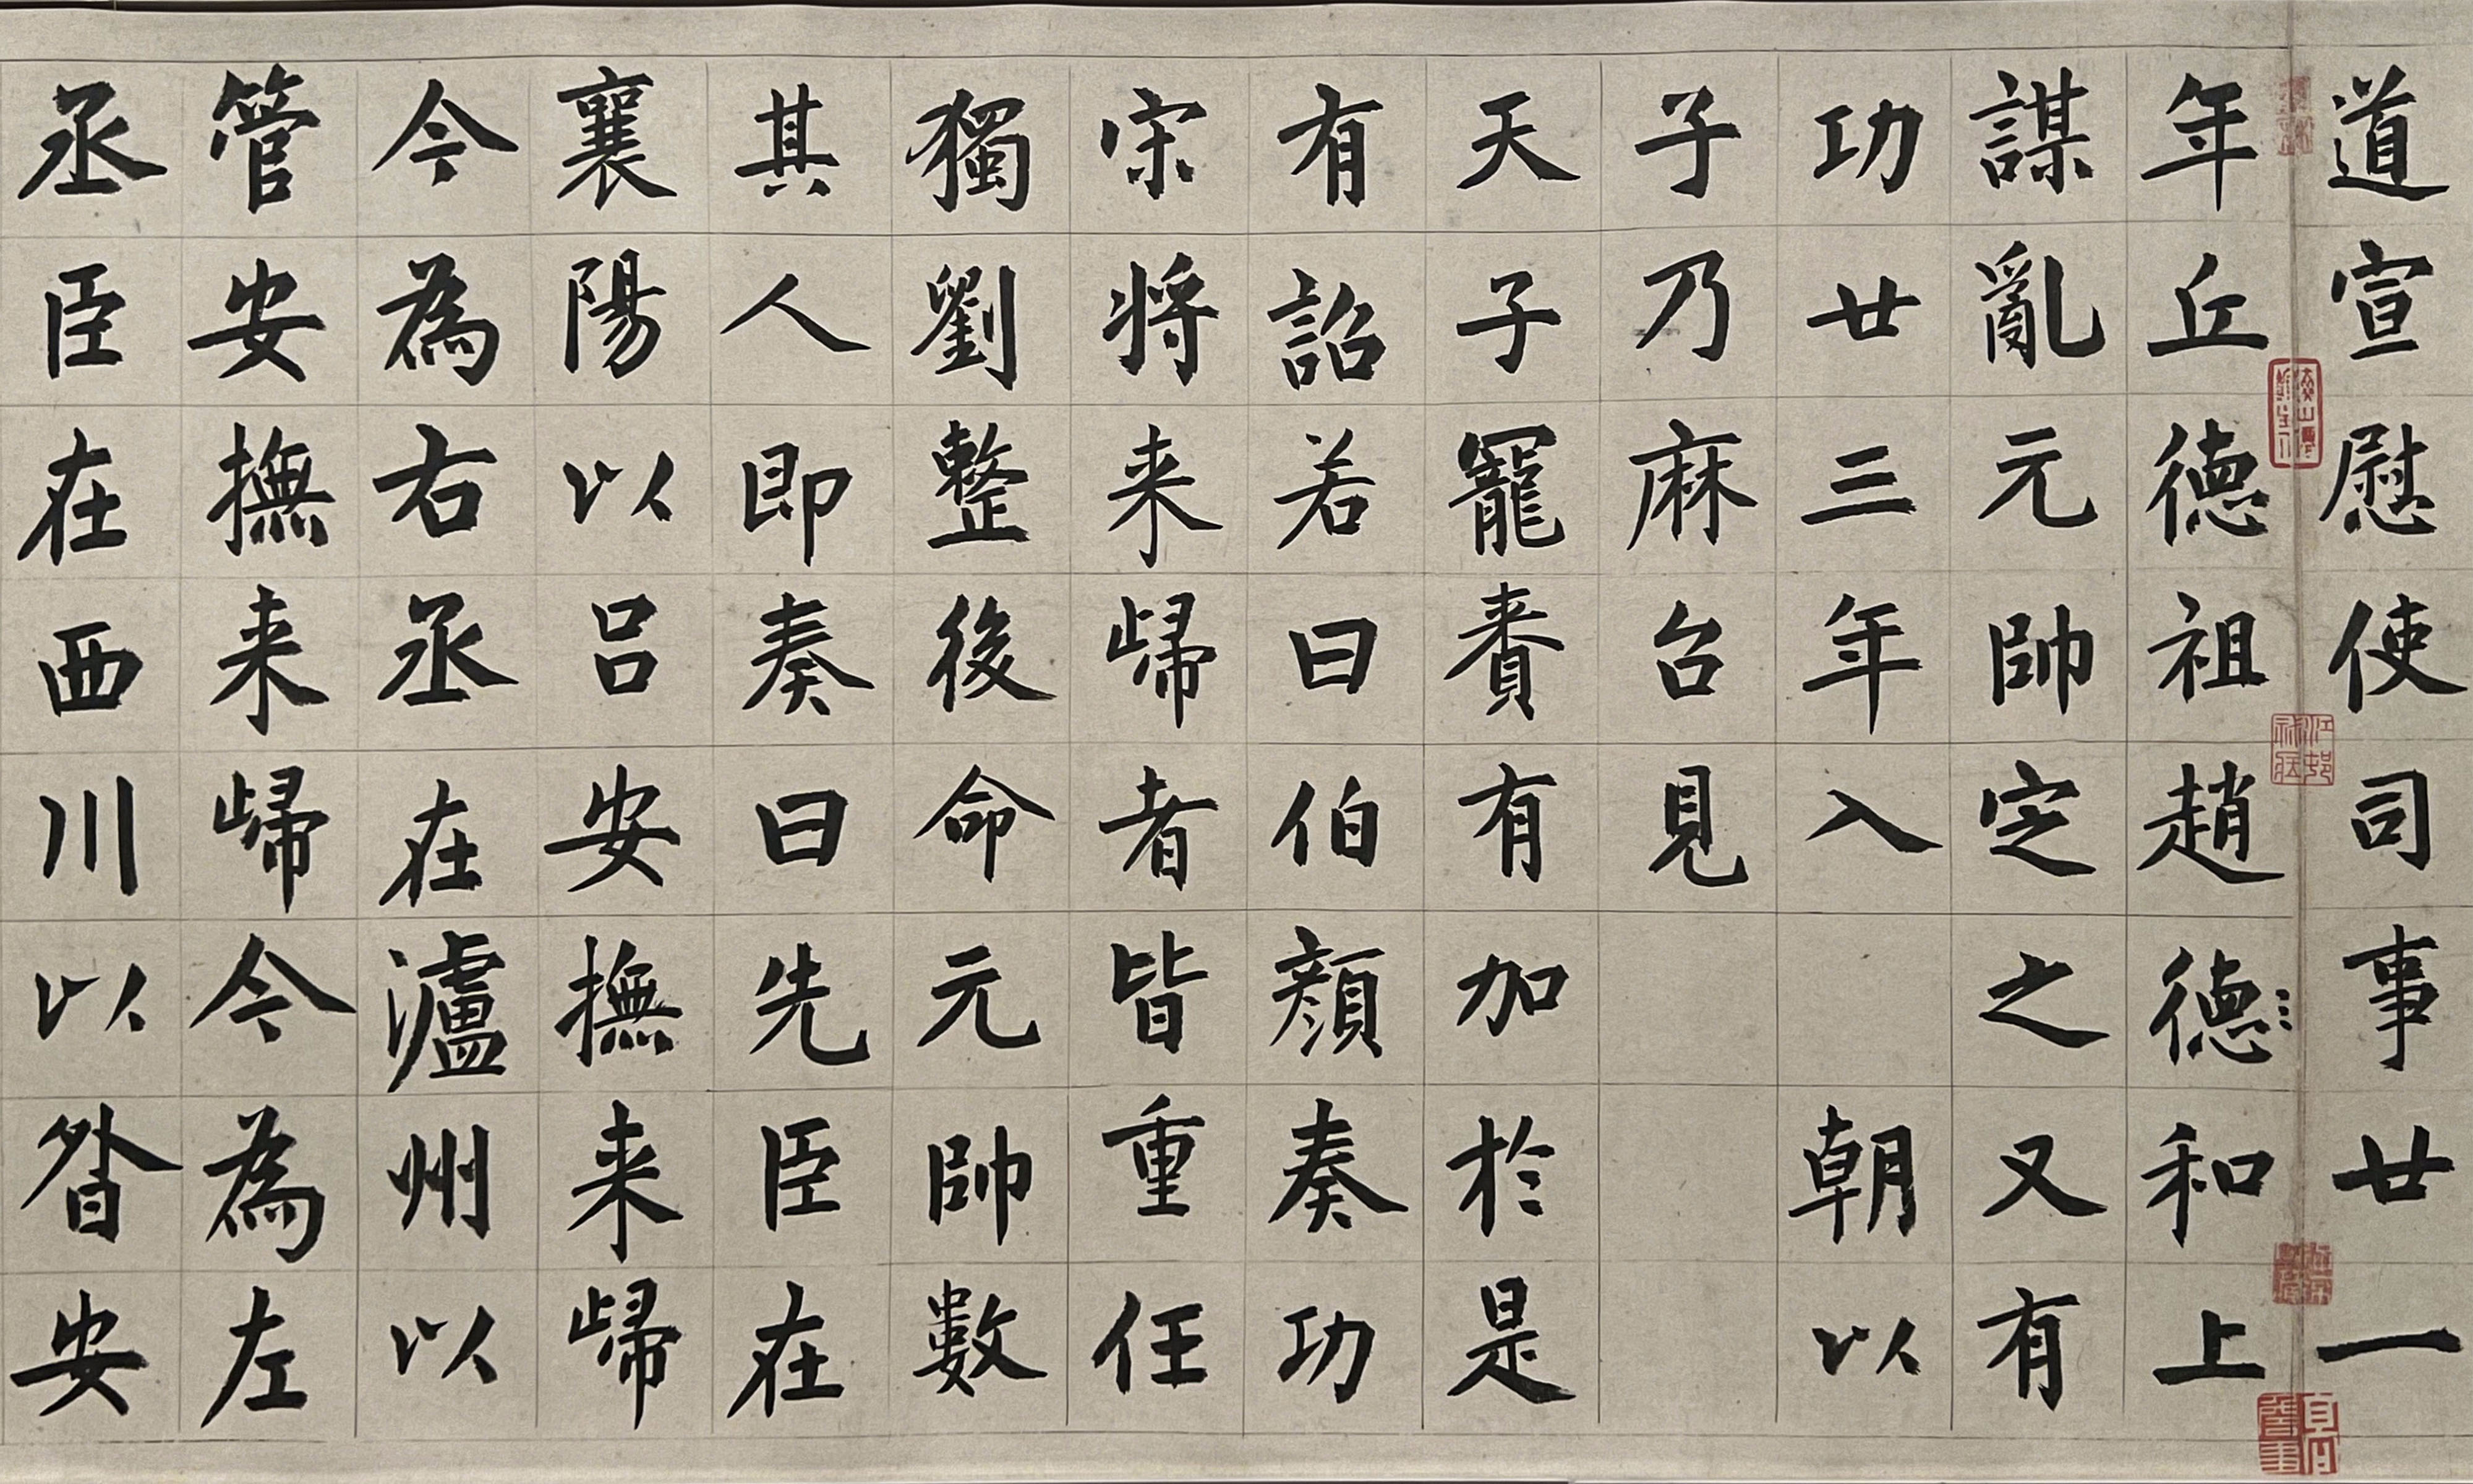 道宣慰使司事廿一
年丘德祖趙德和上
謀亂元帥定之又有
功廿三年入朝以
子乃麻台見
天子寵賚有加於是
有詔若曰伯顏奏功
宋将来歸者皆重任
獨劉整後命元帥數
其人即奏曰先臣在
襄陽以吕安撫来歸
今為右丞在瀘州以
管安撫来歸今為左
丞臣在西川以昝安